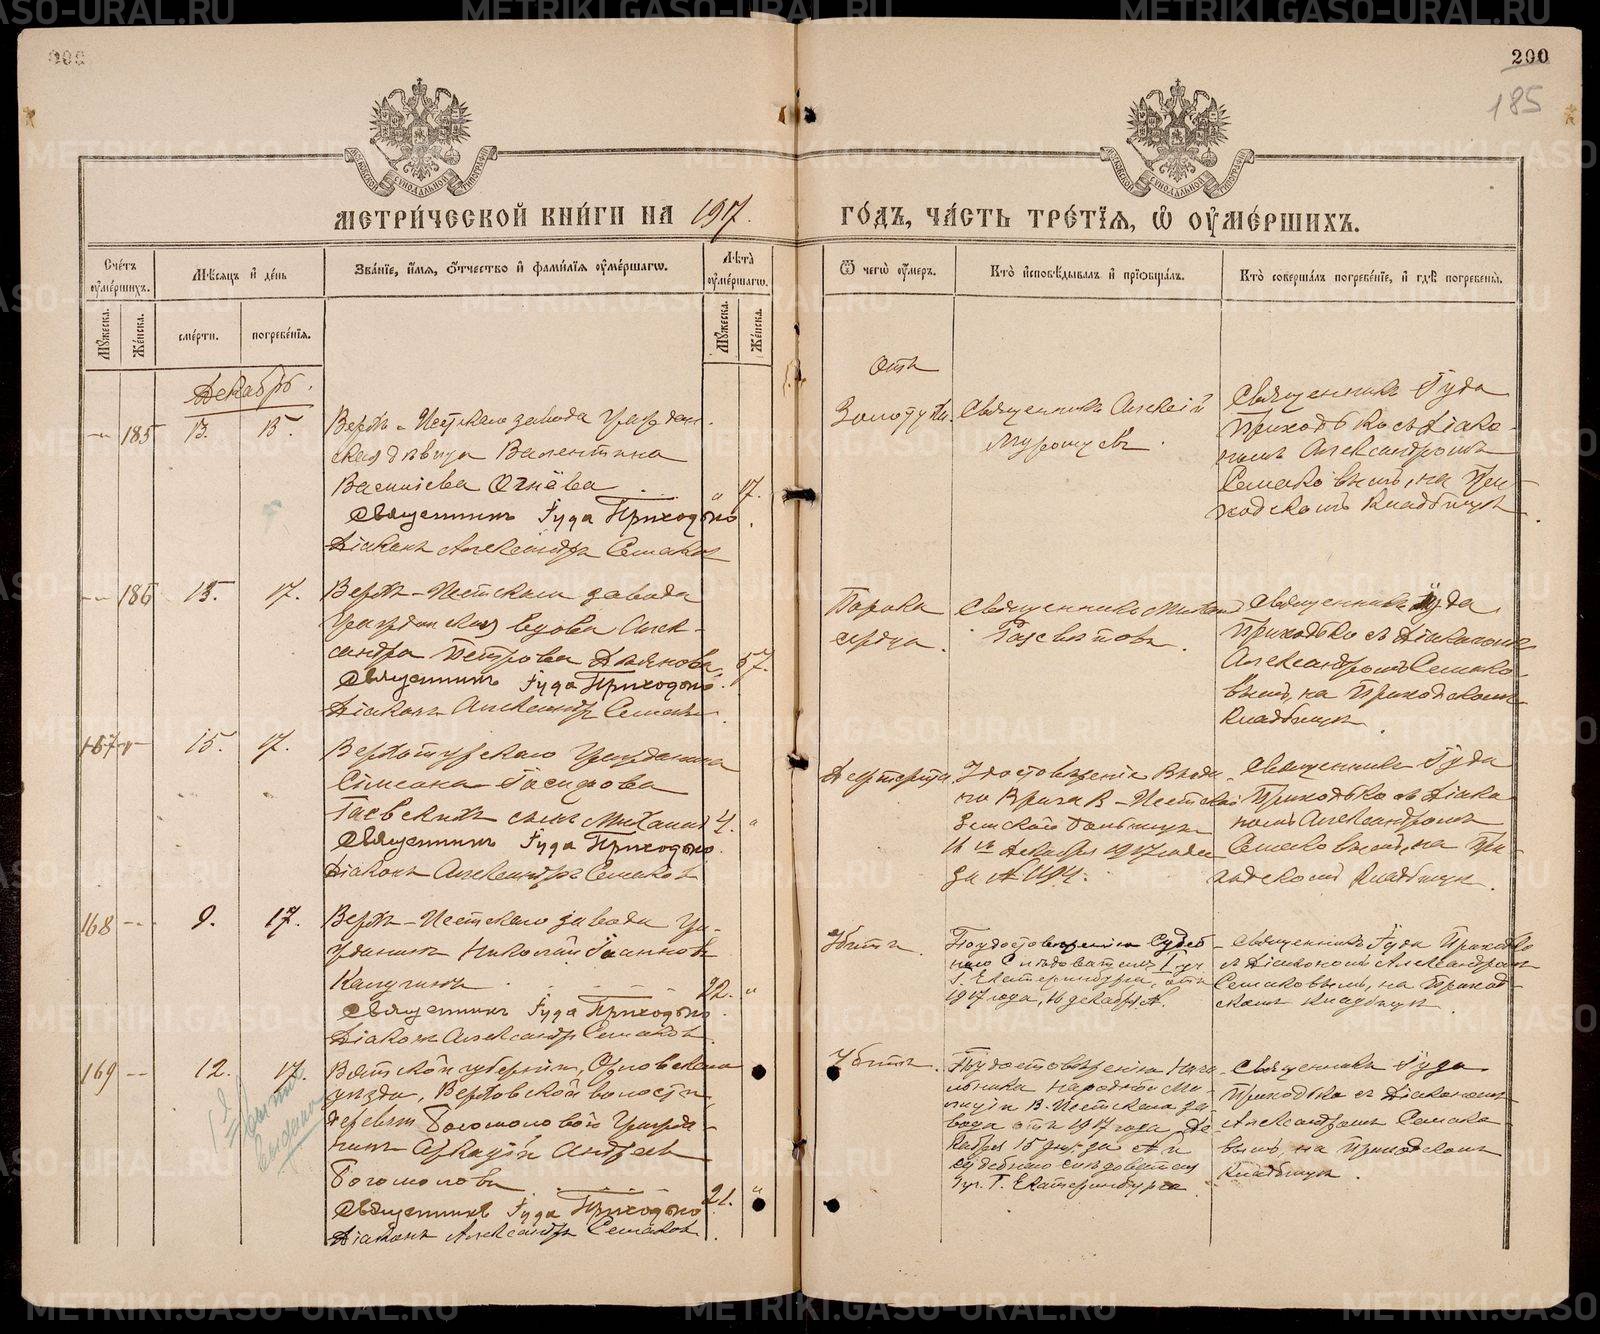 200
185
МЕТРИ́ЧЕСКОЙ КНИ́ГИ НА 1917.
ГО́ДЪ, ЧА́СТЬ ТРЕ́ТЇЯ, Ѽ ОУМЕ́РШИХЪ.
Сче́тъ оуме́ршихъ.
Мѣ́сяцъ и де́нь
Зва́нїе, и́мя, о́тчество и фами́лїя оуме́ршагѡ.
Лѣта̀ оуме́ршагѡ.
Ѿ чегѡ̀ оу́меръ.
Кто̀ и҆сповѣ́дывалъ и прїѡбща́лъ.
Кто̀ соверша́лъ погребе́нїе, и гдѣ̀ погребены̀.
Мꙋ́жеска.
Же́нска.
сме́рти.
погребе́нїя.
Мꙋ́жеска.
Же́нска.
Декабрь.
185 13. 15.
Верхъ-Исетскаго завода Граждан-
ская дѣвица Валентина
Васильева Огнёва 17.
Священникъ Іуда Приходько
Діаконъ Александръ Семаковъ
Отъ
Золотухи.
Священникъ Алексій
Священникъ Іуда
Приходько съ Діако-
номъ Александромъ
Семаковымъ, на При-
ходскомъ кладбищѣ.
186 15. 17.
Верхъ-Исетскаго завода
Гражданская вдова Алек-
сандра Петрова Деянова 57.
Священникъ Іуда Приходько
Діаконъ Александръ Семаковъ
Порока
сердца.
Священникъ Михаилъ
Священникъ Іуда
Приходько съ Діакономъ
Александромъ Семако-
вымъ, на Приходскомъ
кладбищѣ.
167 15. 17.
Верхотурскаго Гражданина
Симеона Іосифова
сынъ Михаилъ 4.
Священникъ Іуда Приходько
Діаконъ Александръ Семаковъ
Удостовѣреніе
Врача В-Исетской
Земской больницы
16 го Декабря 1917 года
за №
Священникъ Іуда
Приходько съ Діако-
номъ Александромъ
Семаковымъ, на При-
ходскомъ кладбищѣ.
168 9. 17.
Верхъ-Исетскаго завода Гра-
жданинъ Николай Іоанновъ
Калугинъ 22.
Священникъ Іуда Приходько
Діаконъ Александръ Семаковъ
Убитъ.
По удостовѣренію Судеб-
наго Слѣдователя I уч.
г. Екатеринбурга, отъ
1917 года, 16 декабря №.
Священникъ Іуда Приходько
съ Діакономъ Александромъ
Семаковымъ, на Приход-
скомъ кладбищѣ.
169 12. 17.
Вятской губерніи, Орловскаго
уѣзда, Верховской волости,
деревни Богомоловой Гражда-
нинъ Аркадій Андреевъ
Богомоловъ 21.
Священникъ Іуда Приходько
Діаконъ Александръ Семаковъ
Убитъ.
По удостовѣренію Нача-
льника Народной Ми-
лиціи В. Исетскаго за-
вода отъ 1917 года, Де-
кабря 15 дня, за № и
судебнаго слѣдователя
г. Екатеринбурга
Священникъ Іуда
Приходько съ Діакономъ
Александромъ Семако-
вымъ, на Приходскомъ
кладбищѣ.
METRIKI.GASO-URAL.RU